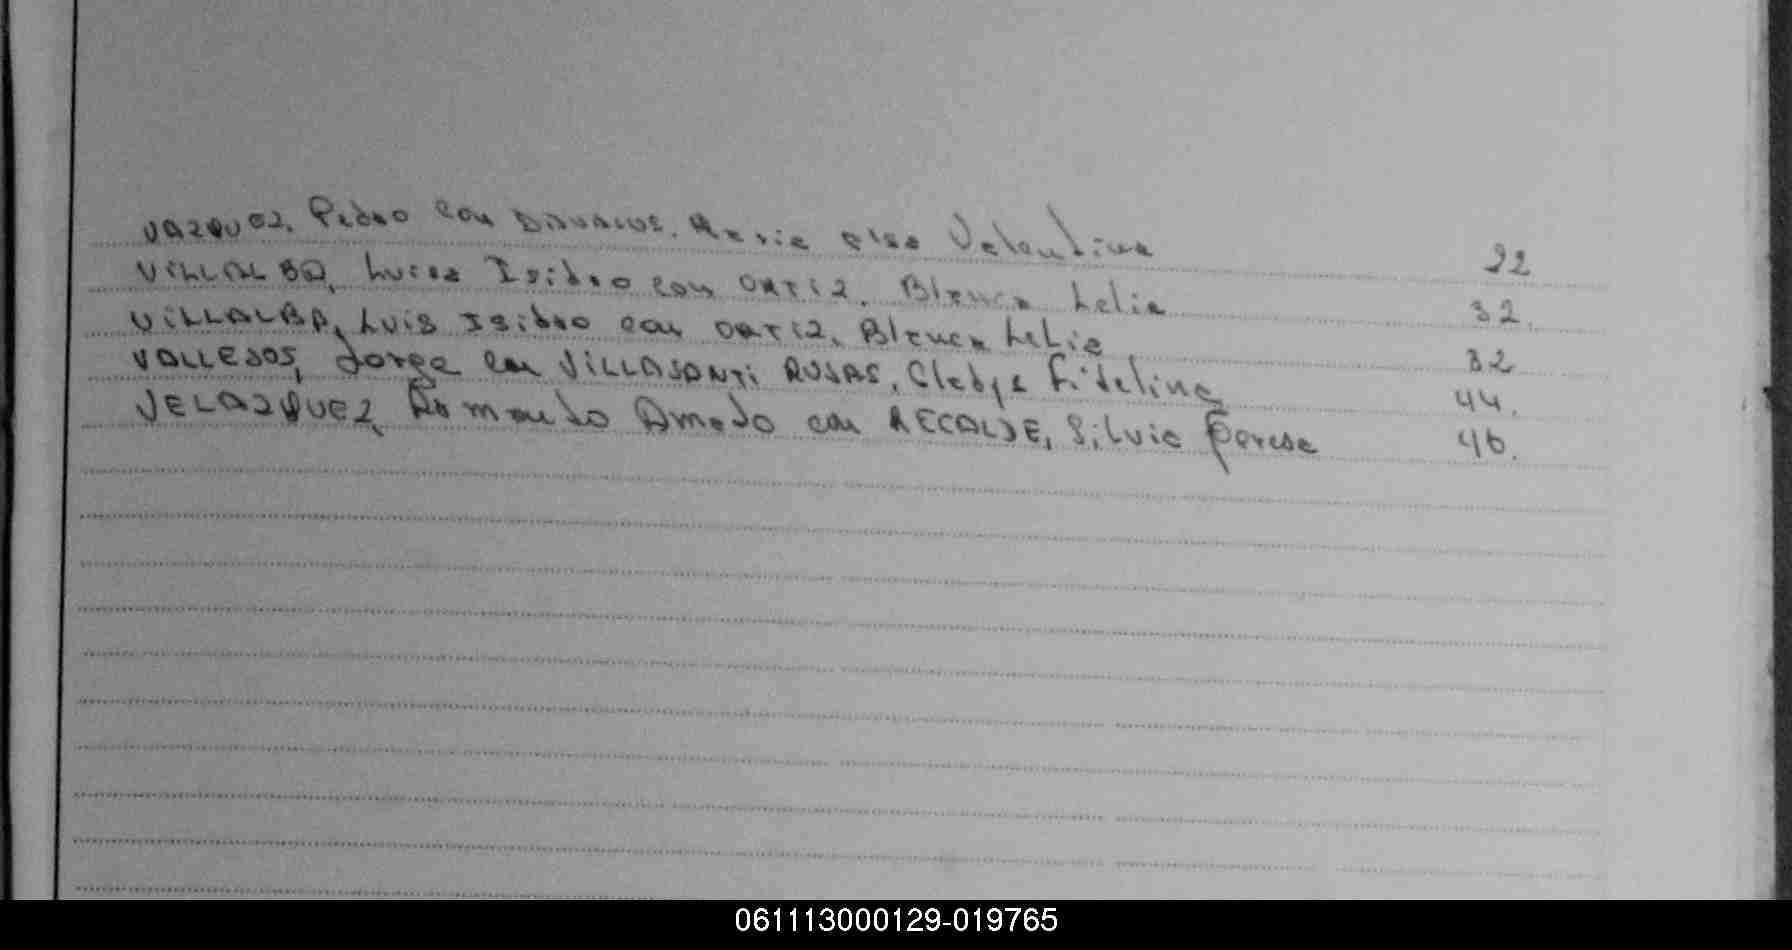 VAZQUEZ, Pedro con DAVALOS, Maria elsa Valentina 22
VILLALBA, Luisa Isidro con ORTIZ, Blanca Lelia 32.
VILLALBA, Luis Isidro con ORTIZ, Blanca Lelia 32
VALLEJOS, Jorge con VILLASANTI ROJAS, Gladys Fidelina 44.
VELAZQUEZ, Amado con RECALDE, Silvia 46.
061113000129-019765